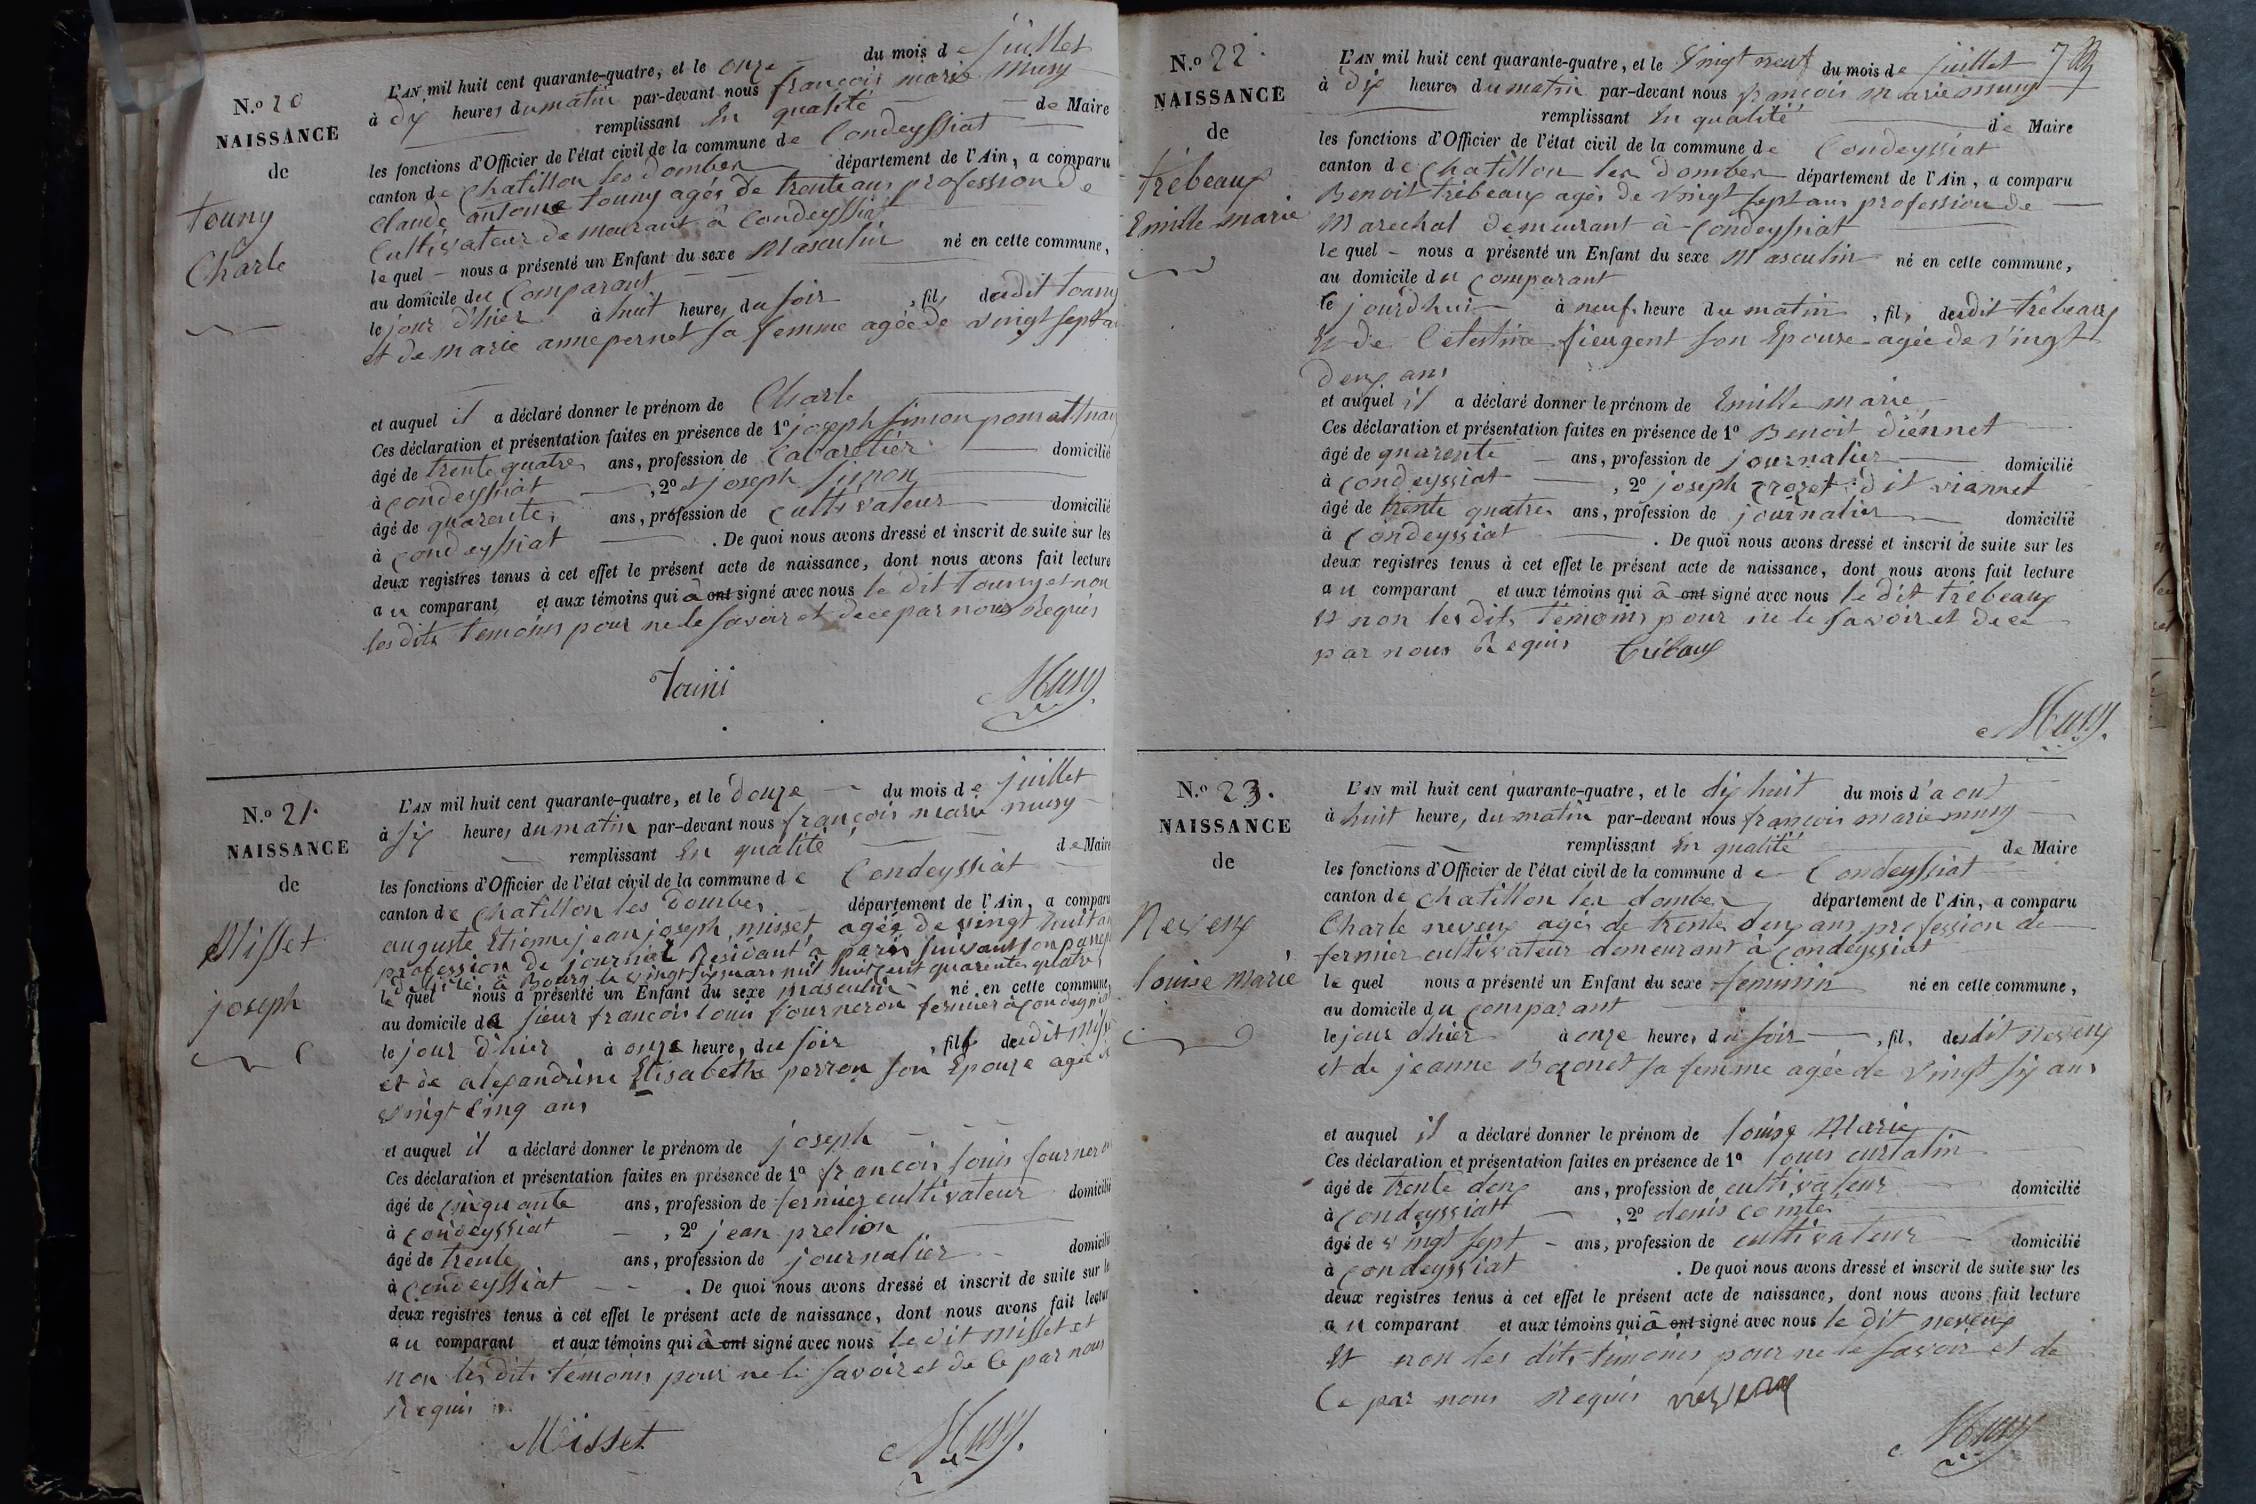 N.o 20
NAISSANCE
de
touny
Charle
L'AN mil huit cent quarante-quatre, et le onze du mois de juillet
à dix heures du matin par-devant nous françois marie Musy
remplissant En qualité de Maire
les fonctions d'Officier de l'état civil de la commune de Condeyssiat
canton de Chatillon les dombes département de l'Ain, a comparu
Claude antoine touny agés de trente ans profession de
Cultivateur demeurant à Condeyssiat
le quel nous a présenté un Enfant du sexe Masculin né en cette commune,
au domicile du Comparant
le jour d'hier à huit heures du soir, fils dudit touny
et de marie anne pernet sa femme agée de vingt sept
et auquel il a déclaré donner le prénom de Charle
Ces déclaration et présentation faites en présence de 1º joseph simon
âgé de trente quatre ans, profession de Cabaretier domicilié
à condeyssiat, 2º et joseph simon
âgé de quarente ans, profession de cultivateur domicilié
à condeyssiat. De quoi nous avons dressé et inscrit de suite sur les
deux registres tenus à cet effet le présent acte de naissance, dont nous avons fait lecture
au comparant et aux témoins qui à ont signé avec nous le dit touny et non
les dits temoins pour ne le savoir et de ce par nous Requis
Touni
Musy
N.o 21.
NAISSANCE
de
Misset
joseph
L'AN mil huit cent quarante-quatre, et le Douze du mois de juillet
à six heures du matin par-devant nous françois marie musy
remplissant En qualité de Maire
les fonctions d'Officier de l'état civil de la commune de Condeyssiat
canton de Chatillon les Dombes département de l'Ain, a comparu
auguste Etienne jean joseph misset agés de vingt huit
profession de journal Résidant à paris suivant son
délivré à Bourg le vingt six mars mil huit cent quarente quatre
le quel nous a présenté un Enfant du sexe masculin né en cette commune,
au domicile de sieur françois louis fourneron fermier à
le jour d'hier à onze heures du soir, fils dudit
et de alexandrine Elisabeth perron son Epouze agée
vingt Cinq ans
et auquel il a déclaré donner le prénom de joseph
Ces déclaration et présentation faites en présence de 1º françois louis
âgé de cinquante ans, profession de fermier cultivateur domicilié
à condeyssiat, 2º jean prelion
âgé de trente ans, profession de journalier
à Condeyssiat. De quoi nous avons dressé et inscrit de suite sur
deux registres tenus à cet effet le présent acte de naissance, dont nous avons fait
au comparant et aux témoins qui à ont signé avec nous le dit Misset et
non les dits témoins pour ne le savoir et de Ce par nous
Requis
Misset
Musy.
N.o 22
NAISSANCE
de
trébeaux
Emille marie
L'AN mil huit cent quarante-quatre, et le Vingt neuf du mois de juillet
à Dix heures du matin par-devant nous françois Marie Musy
remplissant En qualité de Maire
les fonctions d'Officier de l'état civil de la commune de Condeyssiat
canton de Chatillon les Dombes département de l'Ain, a comparu
Benoit trébeaux agés de vingt sept ans profession de
Marechal demeurant à Condeyssiat
le quel nous a présenté un Enfant du sexe Masculin né en cette commune,
au domicile du Comparant
le jourd'hui à neuf heure du matin, fils dudit trébeaux
Et de Celestine fieugent son Epouse agée de Vingt
Deux ans
et auquel il a déclaré donner le prénom de Emille marie
Ces déclaration et présentation faites en présence de 1º Benoit Diénnet
âgé de quarente ans, profession de journalier domicilié
à condeyssiat, 2º joseph crozet dit viannet
âgé de trente quatre ans, profession de journalier domicilié
à Condeyssiat. De quoi nous avons dressé et inscrit de suite sur les
deux registres tenus à cet effet le présent acte de naissance, dont nous avons fait lecture
au comparant et aux témoins qui à ont signé avec nous le dit trébeaux
Et non les dits temoins pour ne le savoir et de ce
par nous Requis
Musy.
N.o 23.
NAISSANCE
de
Neveux
louise Marie
L'AN mil huit cent quarante-quatre, et le dix huit du mois d'aout
à huit heures du matin par-devant nous françois marie musy
remplissant En qualité de Maire
les fonctions d'Officier de l'état civil de la commune de Condeyssiat
canton de Chatillon les dombes département de l'Ain, a comparu
Charle neveux agés de trente deux ans profession de
fermier cultivateur demeurant à Condeyssiat
le quel nous a présenté un Enfant du sexe feminin né en cette commune,
au domicile du comparant
le jour d'hier à onze heures du soir, fil, dudit neveux
et de jeanne Bozonet sa femme agée de vingt six ans
et auquel il a déclaré donner le prénom de louise Marie
Ces déclaration et présentation faites en présence de 1º louis curtalin
âgé de trente deux ans, profession de cultivateur domicilié
à condeyssiatt, 2º denis comte
âgé de vingt sept ans, profession de cultivateur domicilié
à condeyssiat. De quoi nous avons dressé et inscrit de suite sur les
deux registres tenus à cet effet le présent acte de naissance, dont nous avons fait lecture
au comparant et aux témoins qui à ont signé avec nous le dit neveux
Et non les dits temoins pour ne le savoir et de
Ce par nous Requis neveux
Musy